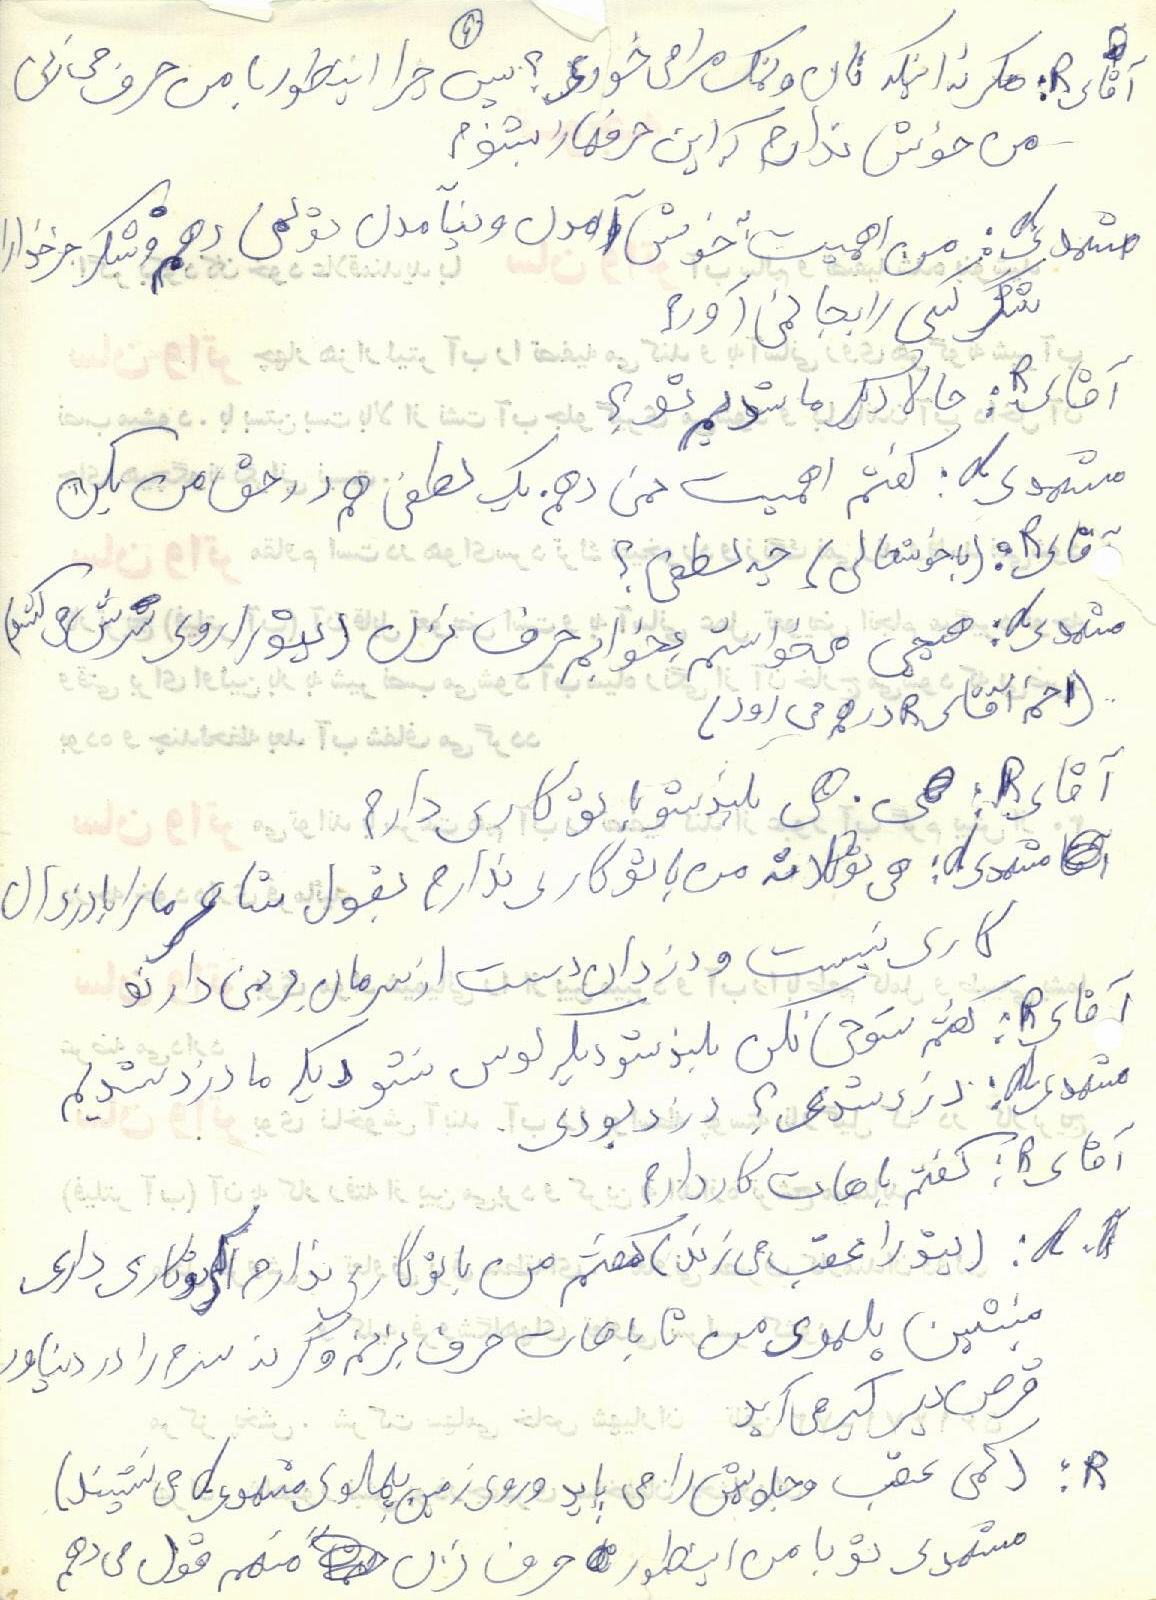 ۹
آقای R: مگر نه اینکه نان و نمک مرا می خوری؟ پس چرا اینطور با من حرف می زنی
من خوش ندارم که این حرفها را بشنوم
مشهدی d: من اهمیت به خوش آمدن و نیامدن تو نمی دهم و شکر جز خدا را
شکر کسی را بجا نمی آورم
آقای R: حالا دیگر ما شدیم تو؟
مشهدی d: گفتم اهمیت نمی دهم. یک لطفی هم در حق من بکن
آقای R: (با خوشحالی) چه لطفی؟
مشهدی d: هیچی می خواستم بخوابم حرف نزن (پتو را روی سرش می کشد)
(اخم آقای R در هم می رود)
آقای R: هی. هی بلند شو با تو کاری دارم
مشهدی d: هی تو کلات من با تو کاری ندارم بقول شاعر ما را با دزدان
کاری نیست و دزدان دست از سرمان بر نمی دارند
آقای R: گفتم شوخی نکن بلند شو دیگر لوس نشو دیگر ما دزد شدیم
مشهدی d: دزد شدی؟ دزد بودی.
آقای R: گفتم باهات کار دارم
d. م: (پتو را عقب می زند) گفتم من با تو کاری ندارم اگر تو کاری داری
بنشین پهلوی من تا باهات حرف بزنم وگرنه سرم را درد نیاور
قرص دیر گیر می آید
R: (کمی عقب و جلویش را می پاید و روی زمین پهلوی مشهدی d می نشیند)
مشهدی تو با من اینطور حرف نزن منهم قول می دهم